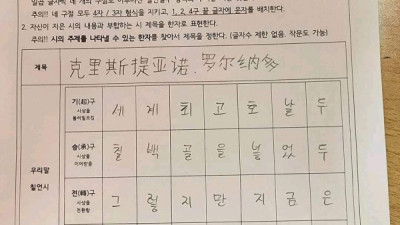 주의!! 네 구절 모두 4자 / 3자 형식을 지키고, 1, 2, 4구 끝 글자에 운자를 배치한다.
2. 자신이 지은 시의 내용과 부합하는 시 제목을 한자로 표현한다.
주의!! 시의 주제를 나타낼 수 있는 한자를 찾아서 제목을 정한다. (글자수 제한 없음. 작문도 가능)
제목 克里斯提亚诺.罗尔纳多
기(起)구 시상을 불러일으킴 세 계 최 고 호 날 두
우리말 칠언시
승(承)구 시상을 이어받음 칠 백 골 을 넣 었 두
전(轉)구 시상을 전환함 그 렇 지 만 지 금 은